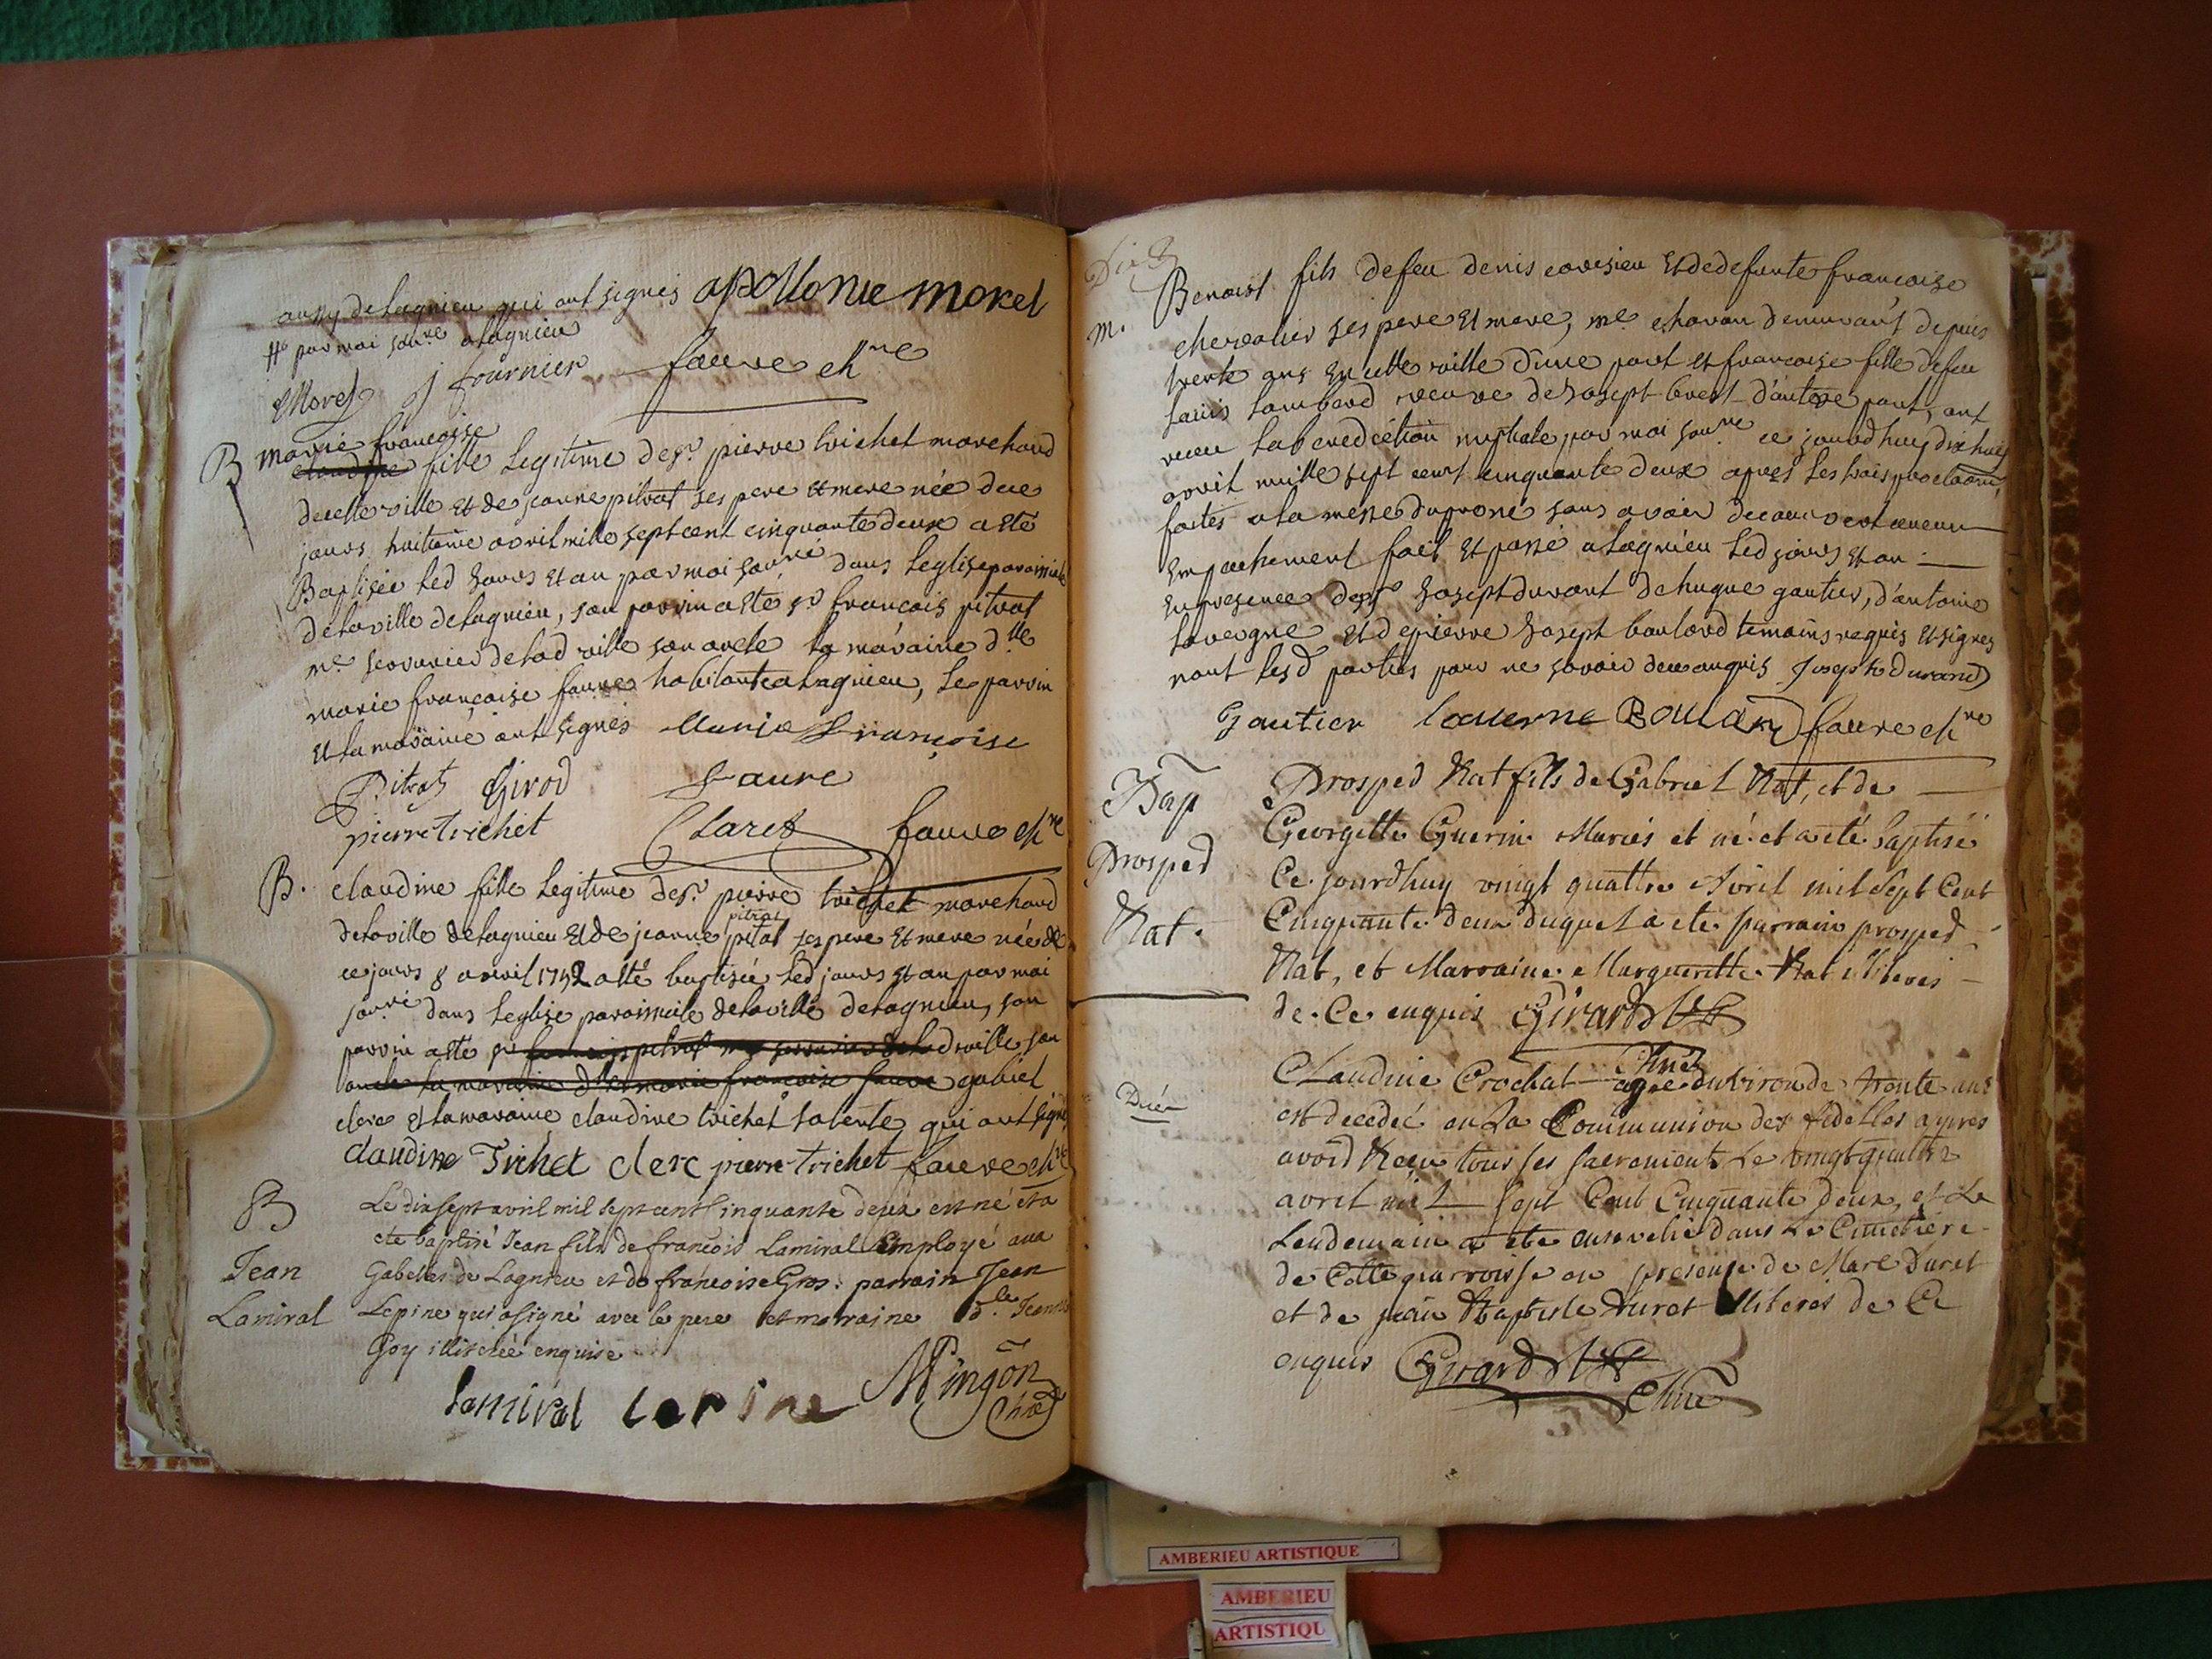 aussy de lagnieu qui ont signés apollonie morel
par moi soub.né a lagnieu
Morel j fournier faure ch.ne
B marie francoise
claudine fille legitime de s.r pierre trichet marchand
de cette ville et de jeanne pitrat ses pere et mere née de ce
jours huitieme avril mille sept cent cinquante deux a esté
Baptisée led jours et an par moi sou.né dans leglise paroissiale
de la ville de lagnieu, son parrin a esté s.r francois pitrat
m.e serrurier de lad ville son oncle la maraine d.lle
marie françoise faure habitante a lagnieu, le parrin
et la maraine ont signés Marie Françoise
Pitrat Girod Faure
pierre trichet Claret faure ch.ne
B. claudine fille legitime de s.r pierre trichet marchand
pitrat
de la ville de lagnieu et de jeanne pitat ses pere et mere née de
ce jours 8 avril 1752 a esté baptisée led jours et an par moi
sou.né dans leglise paroissiale de la ville de lagnieu, son
parrin a esté s.r francois pitrat m.e serrurier de lad ville son
oncle la maraine d.lle marie francoise faure gabriel
clerc et la maraine claudine trichet sa tente qui ont signé
claudine Trichet clerc pierre trichet faure ch.ne
B Le dix sept avril mil sept cent cinquante deux est né et a
eté baptisé Jean fils de françois Lamiral Employé aux
Jean Gabelles de Lagnieu et de françoise Gros: parrain Jean
Lamiral Lepine qui a signé avec le pere et marraine d.lle Jeanne
Goy illiterée enquise
Lamiral Lepine Mingon
Ch.ne
m. Benoist fils de feu denis corisieu et de defunte francoise
chevalier ses pere et mere, m.e charon demeurant depuis
trente ans en cette ville d'une part et francoise fille de feu
louis lombard veuve de Josept brest d'autre part, ont
receu la benediction nuptiale par moi sou.né ce jourdhuy dix huit
avril mille sept cent cinquante deux apres les trois proclam.
faites a la messe du prone sans avoir decouvert aucun
Empechement fait et passé a lagnieu led jours et an
En presence de s.r Josept durant de hugue gautier, d'antoine
lavergne et de pierre Josept boulard temoins requis et signes
nont lesd parties pour ne savoir de ce enquis Joseph durand
Gautier lauerne Boulard faure ch.ne
Bap Prosped Nat fils de Gabriel Nat, et de
Georgette Guerin Mariés et né et a eté baptisé
Prosped Ce jourdhuy vingt quattre Avril mil Sept Cent
Nat. Cinquante deux duquel a ete parrain prosped
Nat, et Marraine Margueritte Nat illiterés
de Ce enquis Girard
Claudine Crochat agée d'environ de trente ans
est decedeé en La Communion des fidelles apres
avoir Reçu tous ses sacrements Le vingt quattre
avril mil sept Cent Cinquante deux, et Le
Lendemain a ete ensevelie dans Le Cimetiere
de Cette parroisse en presence de Marc Duret
et de jean Baptiste Duret illiterés de Ce
enquis Girard
Chne
AMBERIEU ARTISTIQUE
AMBERIEU
ARTISTIQU